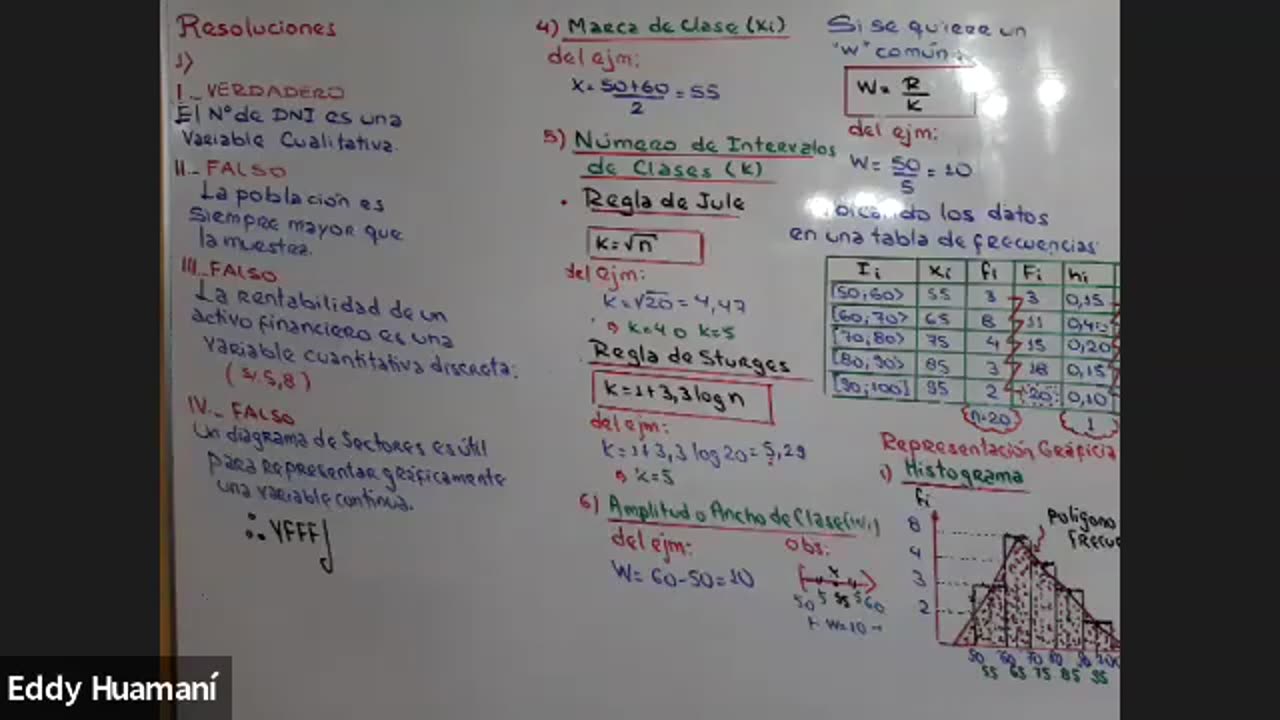 Resoluciones
1)
I_ VERDADERO
El N° de DNI es una
Variable Cualitativa.
II_ FALSO
La población es
siempre mayor que
la muestra.
III_ FALSO
La rentabilidad de un
activo financiero es una
variable cuantitativa discreta:
(S/. 5,8)
IV_ FALSO
Un diagrama de Sectores es útil
para representar gráficamente
una variable continua.
∴ VFFF
4) Marca de Clase (Xi)
del ejm:
X = 50+60 / 2 = 55
5) Número de Intervalos
de Clases (K)
• Regla de Jule
K = √n
del ejm:
K = √20 = 4,47
K=4 o K=5
Regla de Sturges
K = 1+3,3 log n
del ejm:
K = 1+3,3 log 20 = 5,29
K=5
6) Amplitud o Ancho de Clase (Wi)
del ejm:
W = 60-50 = 10
Obs:
50 5 55 5 60
W=10
Si se quiere un
"W" común:
W = R / K
del ejm:
W = 50 / 5 = 10
los datos
en una tabla de frecuencias
Ii Xi fi Fi hi
[50;60> 55 3 3 0,15
[60;70> 65 8 11 0,40
[70;80> 75 4 15 0,20
[80;90> 85 3 18 0,15
[90;100] 95 2 20 0,10
n=20 1
Representación Gráfica
i) Histograma
fi
polígono
8
4
3
2
50 60 70 80 90 100
55 65 75 85 95
Eddy Huamaní